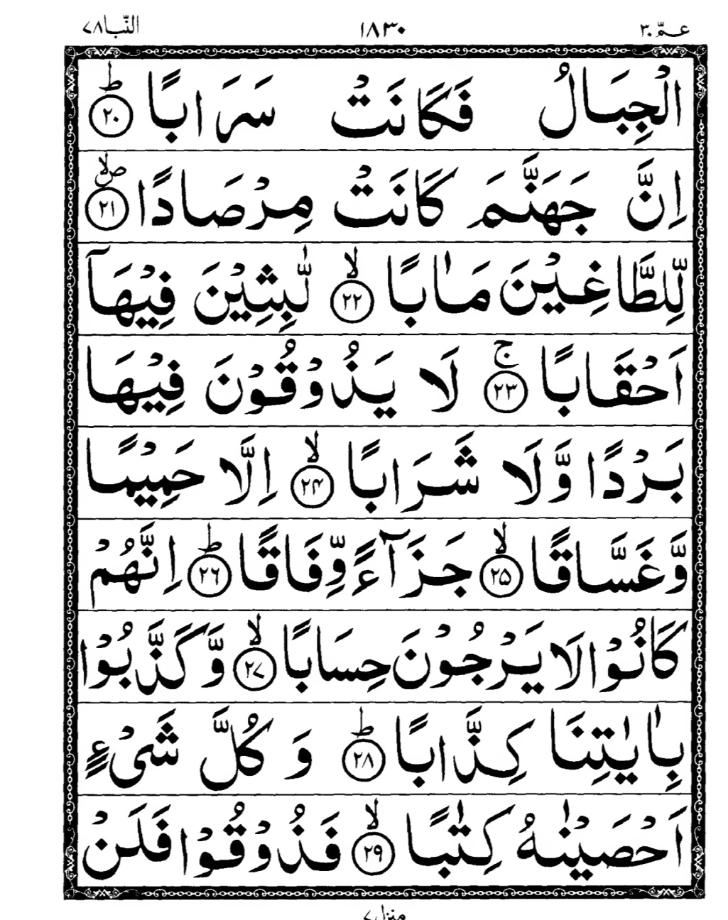 عمّ ٣٠ ١٨٣٠ النّبا ٧٨
الْجِبَالُ فَكَانَتْ سَرَابًا ؕ‏ ﴿۲۰﴾
اِنَّ جَهَنَّمَ كَانَتْ مِرْصَادًا ۪ۙ‏ ﴿۲۱﴾
لِّلطَّاغِيْنَ مَاٰبًا ۙ‏ ﴿۲۲﴾ لّٰبِثِيْنَ فِيْهَاۤ
اَحْقَابًا ۚ‏ ﴿۲۳﴾ لَا يَذُوْقُوْنَ فِيْهَا
بَرْدًا وَّلَا شَرَابًا ۙ‏ ﴿۲۴﴾ اِلَّا حَمِيْمًا
وَّغَسَّاقًا ۙ‏ ﴿۲۵﴾ جَزَآءً وِّفَاقًا ؕ‏ ﴿۲۶﴾ اِنَّهُمْ
كَانُوْا لَا يَرْجُوْنَ حِسَابًا ۙ‏ ﴿۲۷﴾ وَّكَذَّبُوْا
بِاٰيٰتِنَا كِذَّابًا ؕ‏ ﴿۲۸﴾ وَ كُلَّ شَىْءٍ
اَحْصَيْنٰهُ كِتٰبًا ۙ‏ ﴿۲۹﴾ فَذُوْقُوْا فَلَنْ
منزل ٧